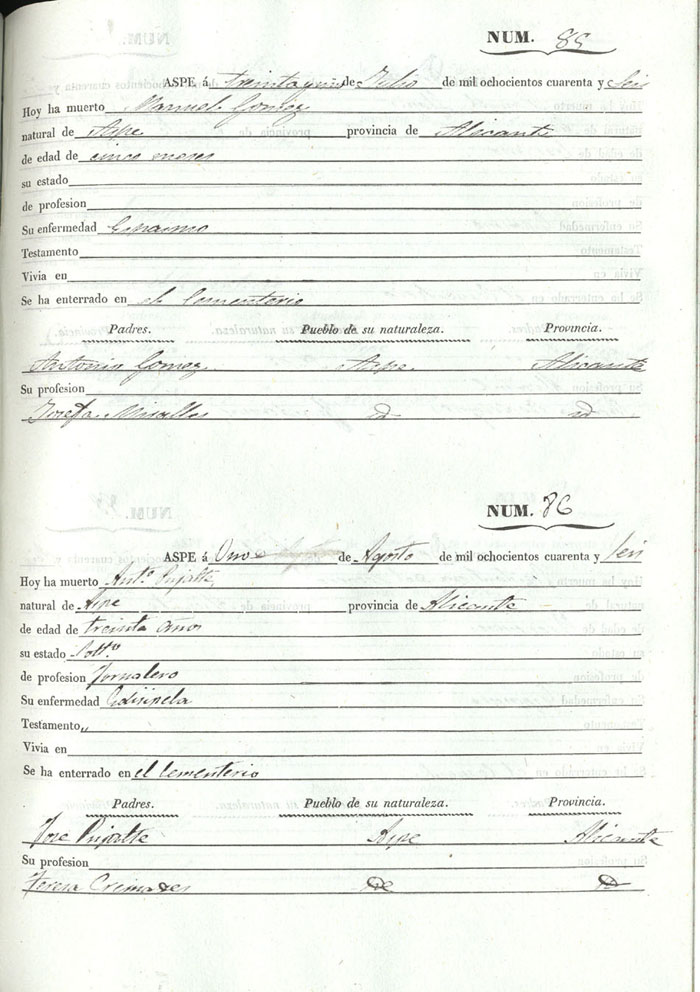 NUM. 85
ASPE á treinta y uno de Julio de mil ochocientos cuarenta y Seis
Hoy ha muerto Manuel Gomez
natural de Aspe provincia de Alicante
de edad de cinco meses
su estado
de profesion
Su enfermedad
Testamento
Vivia en
Se ha enterrado en el Cementerio
Padres. Pueblo de su naturaleza. Provincia.
Antonio Gomez Aspe Alicante
Su profesion
Josefa Miralles id id
NUM. 86
ASPE á Once de Agosto de mil ochocientos cuarenta y seis
Hoy ha muerto Antº Pujalte
natural de Aspe provincia de Alicante
de edad de treinta años
su estado Soltº
de profesion Jornalero
Su enfermedad
Testamento "
Vivia en
Se ha enterrado en el Cementerio
Padres. Pueblo de su naturaleza. Provincia.
Jose Pujalte Aspe Alicante
Su profesion
Teresa Cremades id id